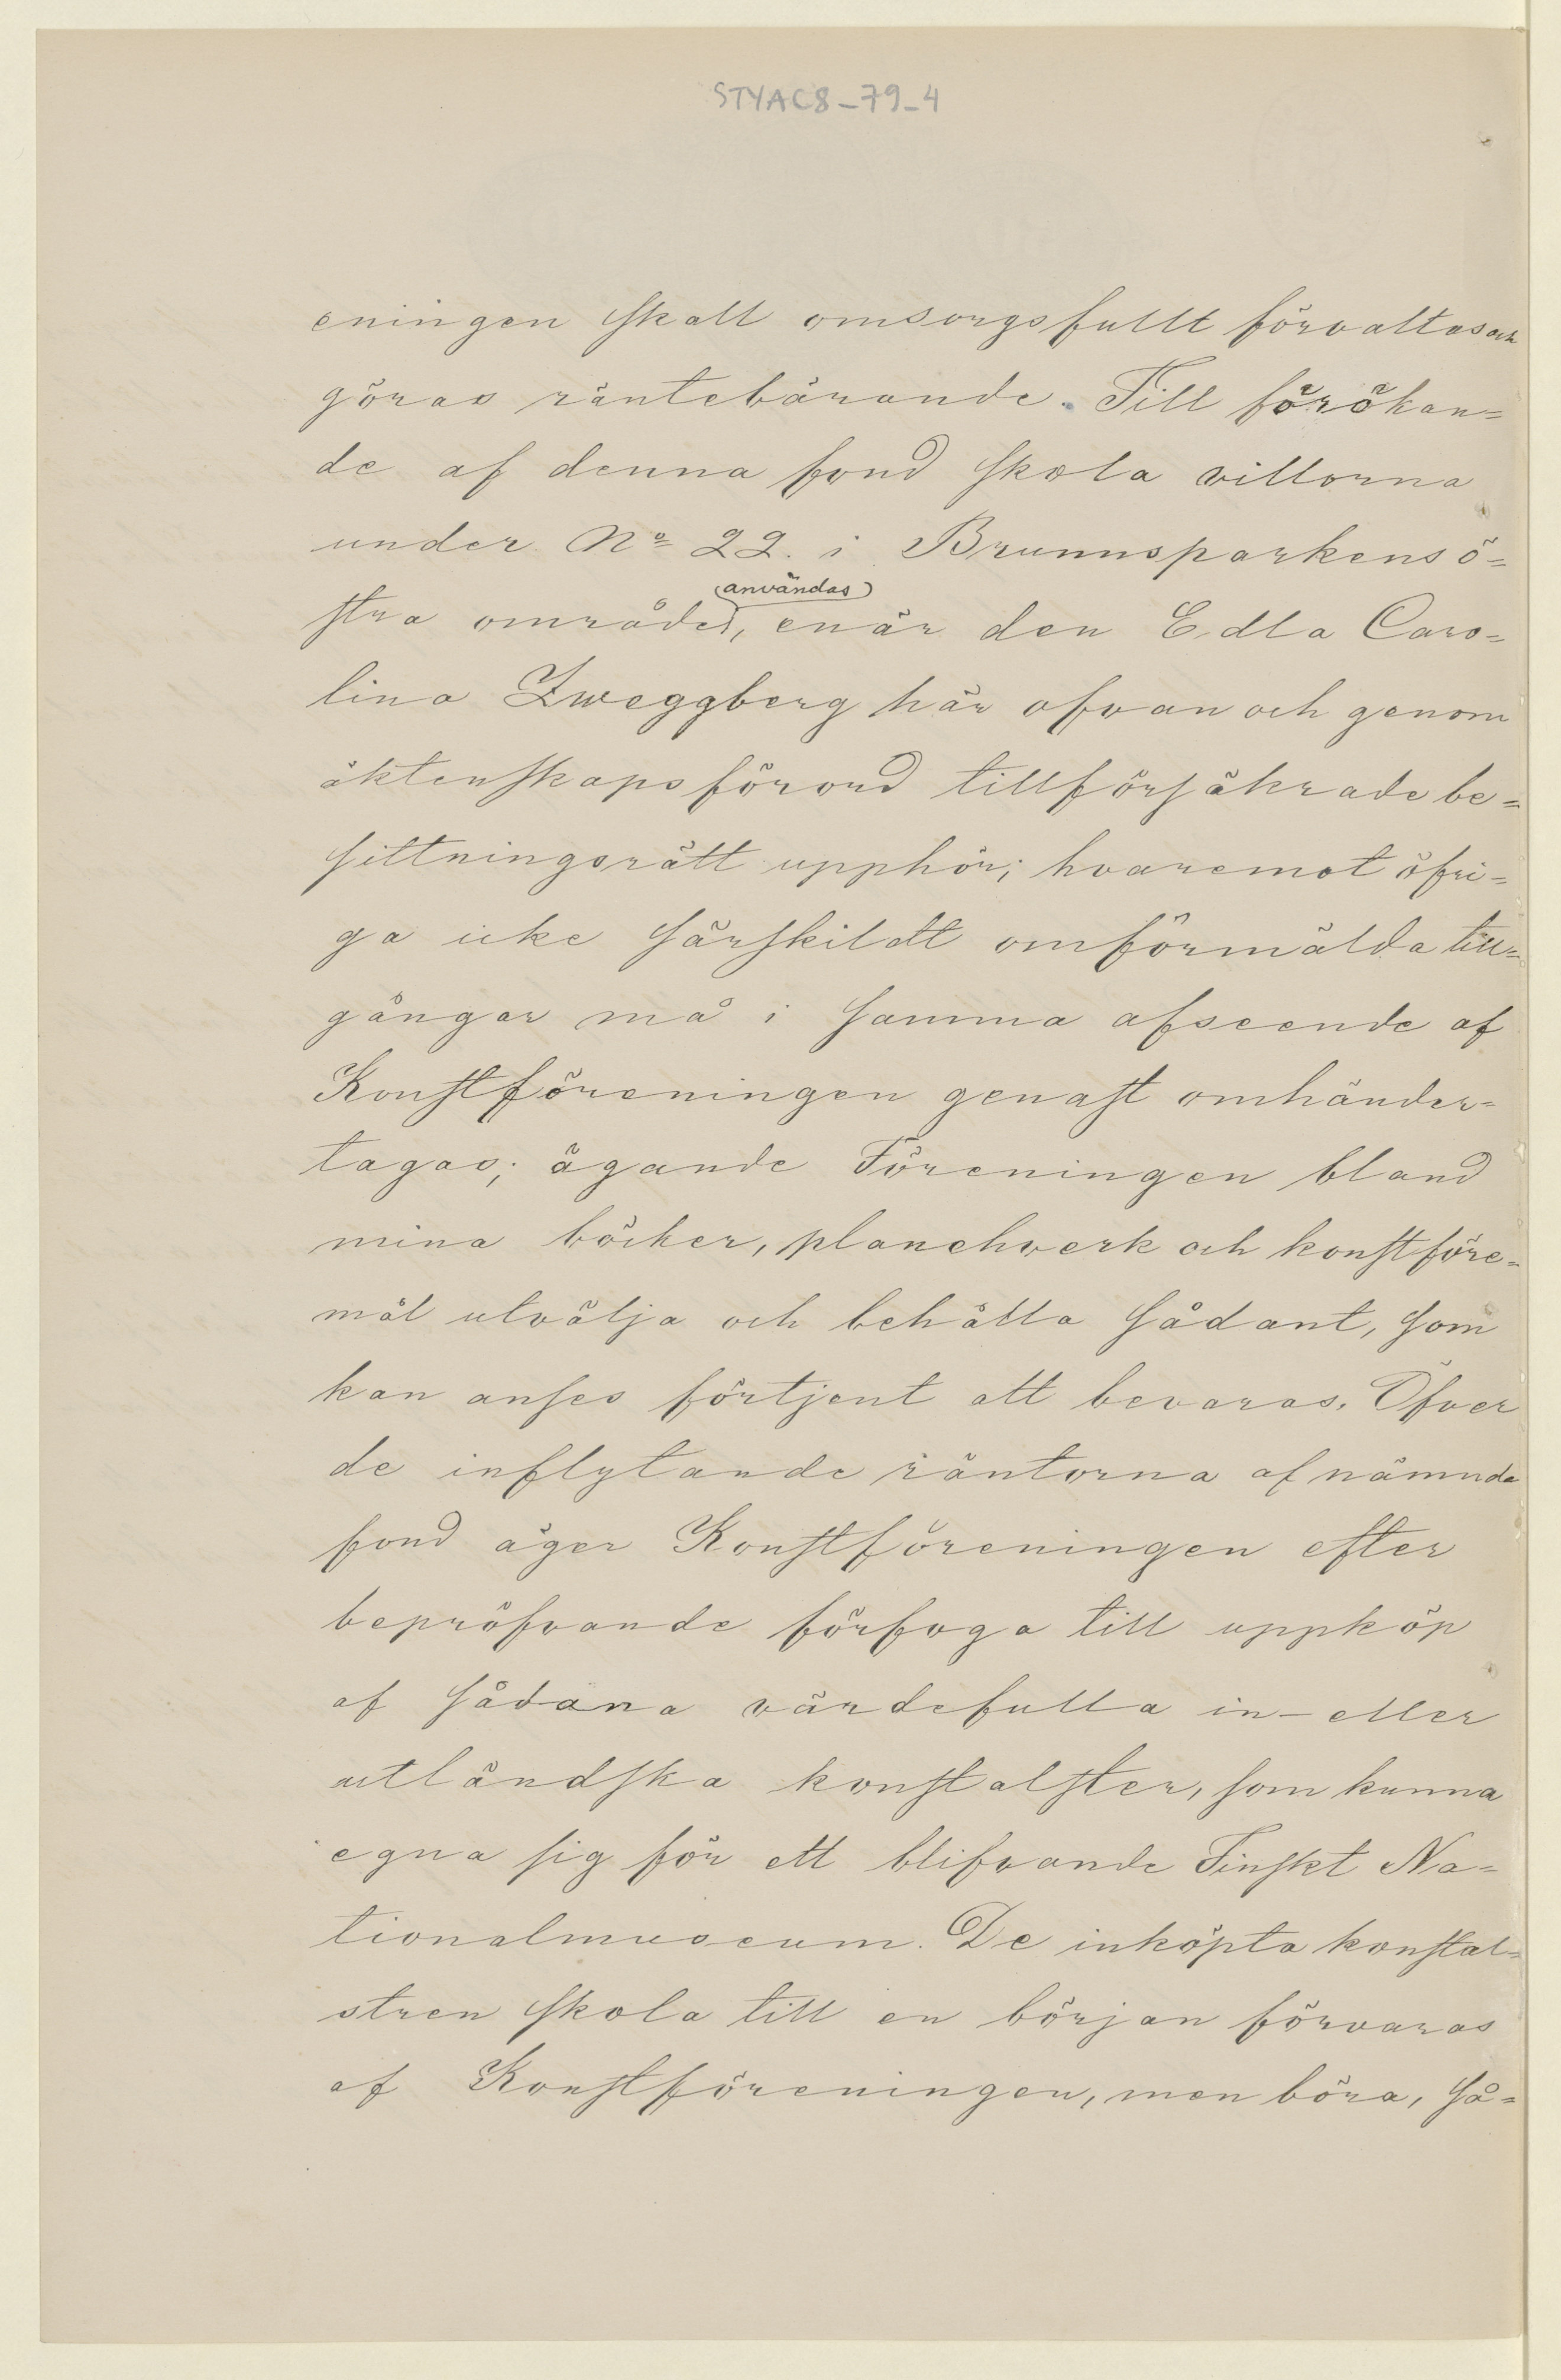 STYAC8_79_4
eningen skall omsorgsfullt förvaltas och
göras räntebärande. Till förökan=
de af denna fond skola villorna
under No 22. i Brunnsparkens ö=
användas
stra område, enär den Edla Caro=
lina Zweggberg här ofvan och genom
äktenskapsförord tillförsäkrade be=
sittningsrätt upphör; hvaremot öfri=
ga icke särskildt omförmälda till=
gångar må i samma afseende af
Konstföreningen genast omhänder=
tagas; ägande Föreningen bland
mina böcker, planchverk och konstföre=
mål utvälja och behålla sådant, som
kan anses förtjent att bevaras. Öfver
de inflytande räntorna af nämnda
fond äger Konstföreningen efter
bepröfvande förfoga till uppköp
af sådana värdefulla in- eller
utländska konstalster, som kunna
egna sig för ett blifvande Finskt Na=
tionalmuseum. De inköpta konstal=
stren skola till en början förvaras
af Konstföreningen, men böra, så=